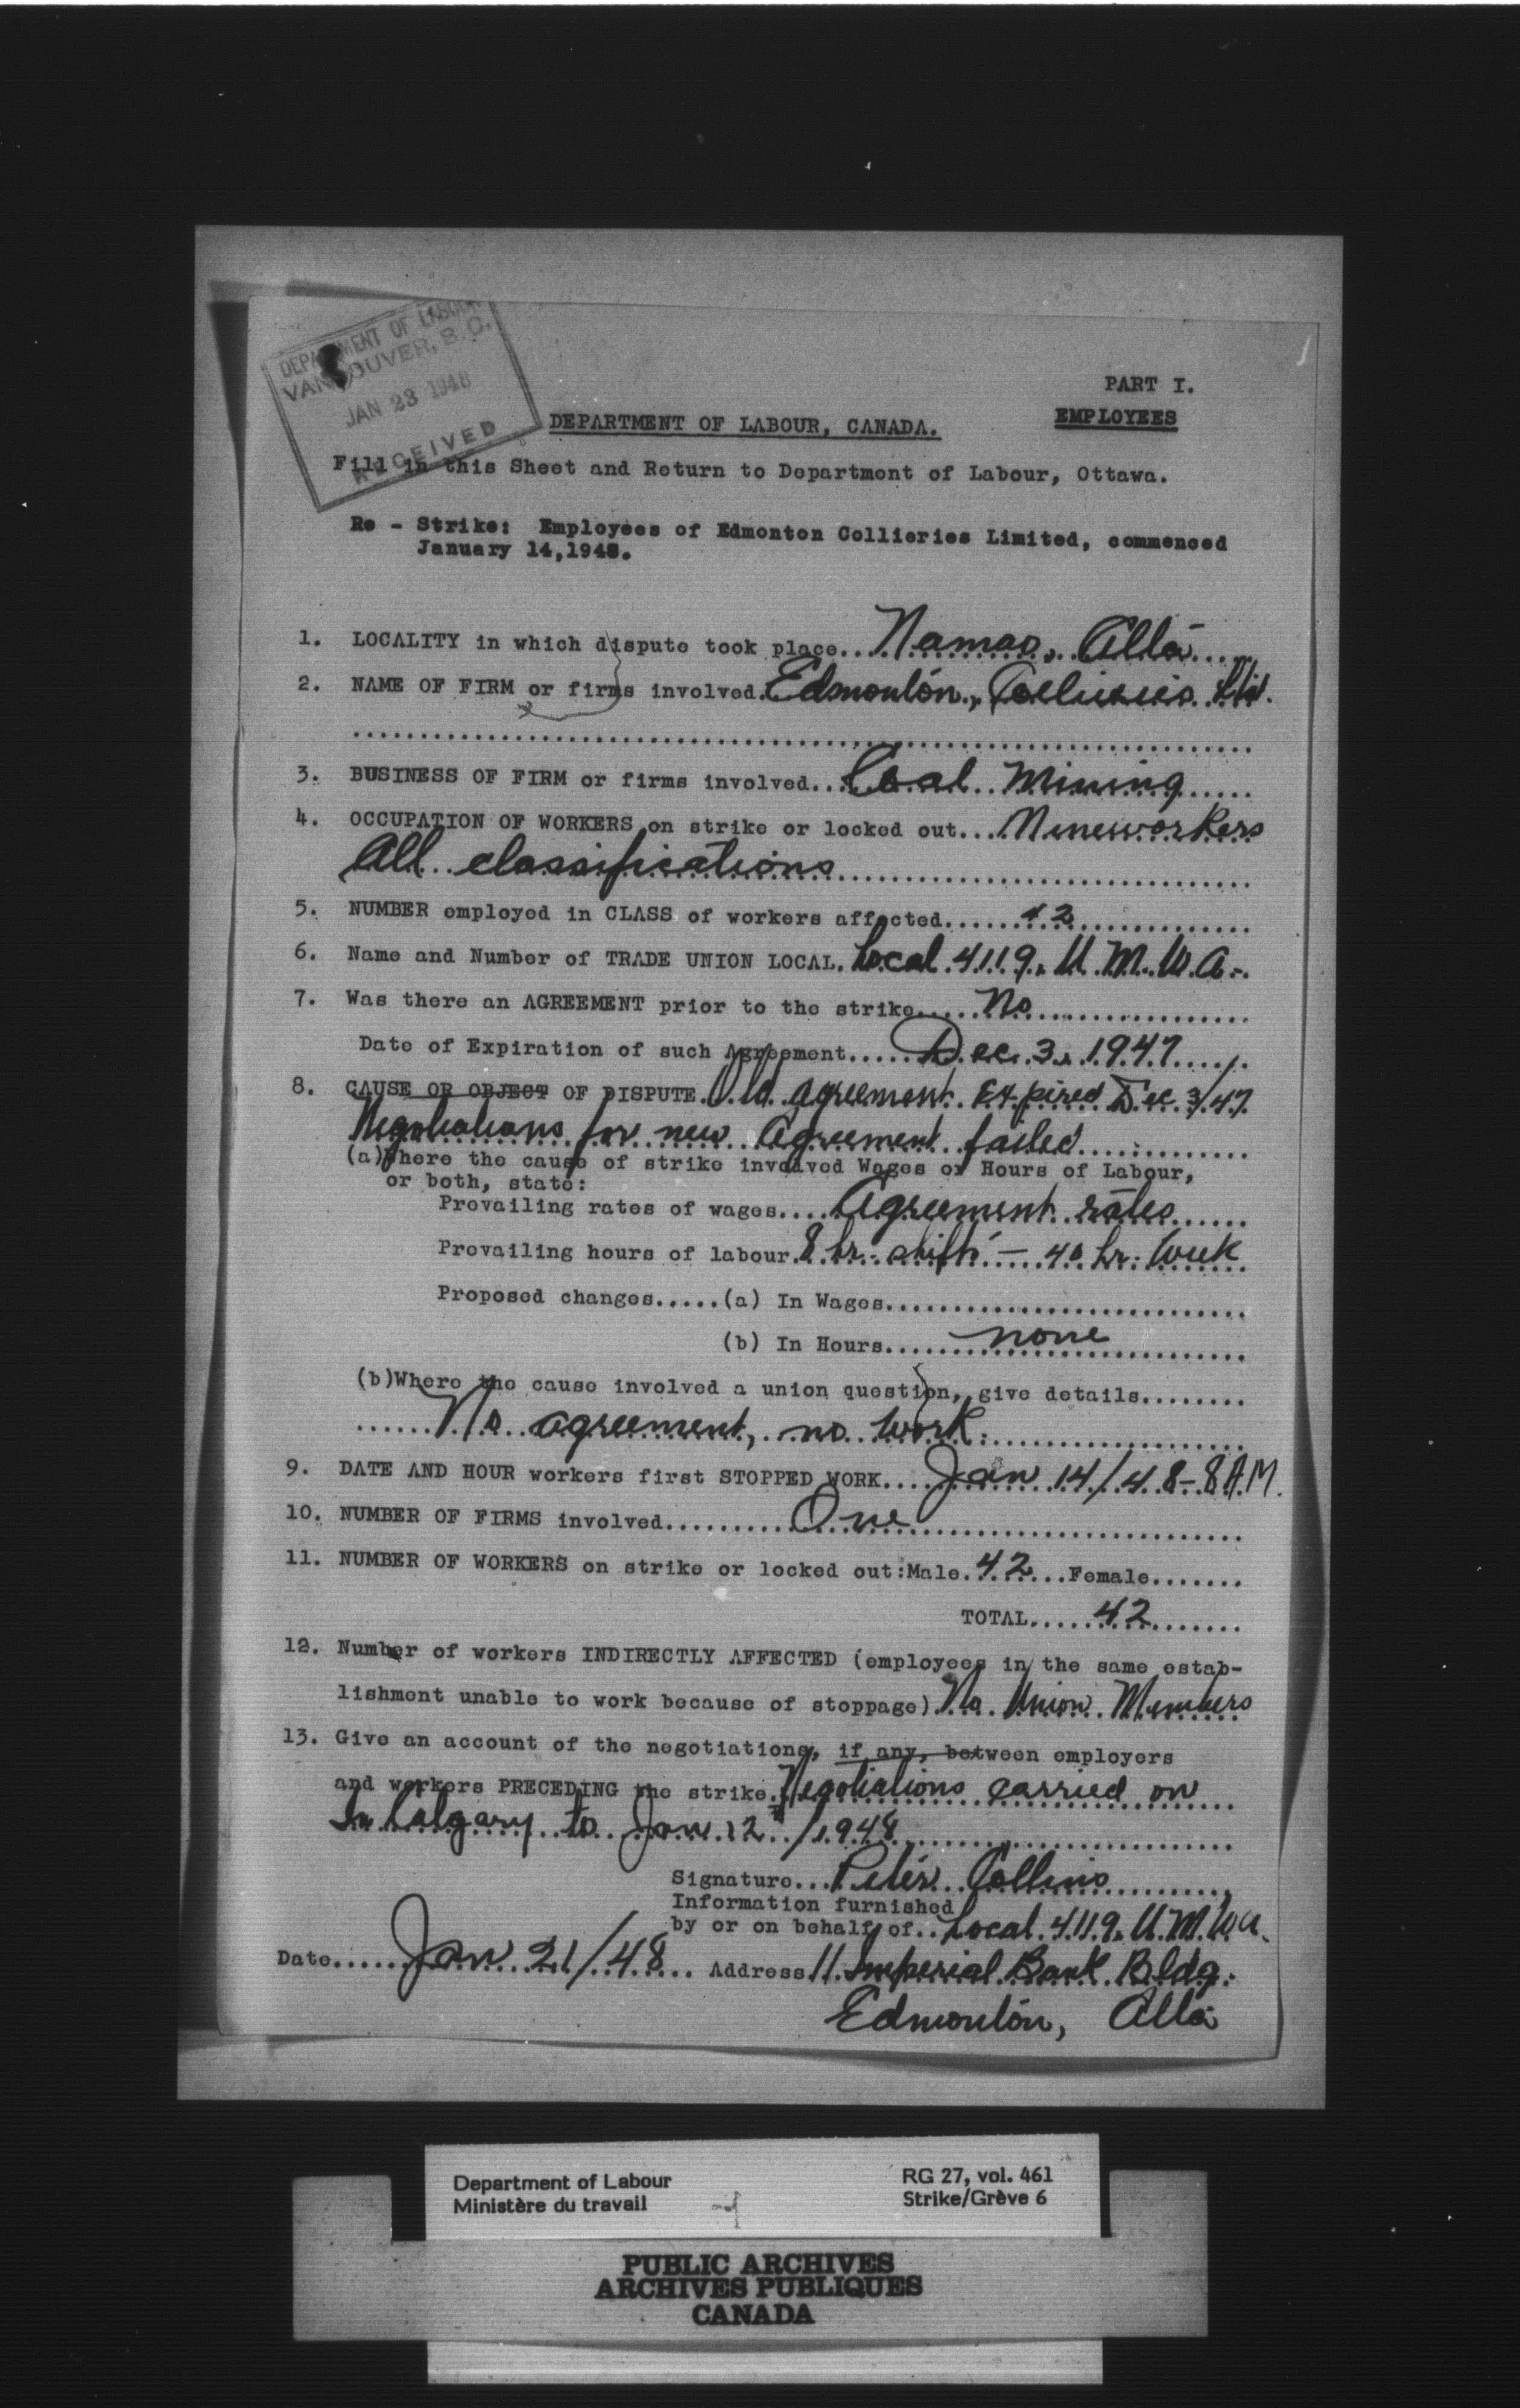 DEPARTMENT OF LABOUR
VANCOUVER, B.C.
JAN 23 1948
RECEIVED
PART I.
DEPARTMENT OF LABOUR, CANADA.
EMPLOYEES
Fill in this Sheet and Return to Department of Labour, Ottawa.
Re - Strike: Employees of Edmonton Collieries Limited, commenced
January 14,1948.
1. LOCALITY in which dispute took place...Namao, Alta.....
2. NAME OF FIRM or firms involved.Edmonton, Collieries Ltd.
3. BUSINESS OF FIRM or firms involved...Coal Mining.....
4. OCCUPATION OF WORKERS on strike or locked out...Mineworkers
All classifications
5. NUMBER employed in CLASS of workers affected......42
6. Name and Number of TRADE UNION LOCAL.Local 4119, U.M.W.A.
7. Was there an AGREEMENT prior to the strike.....No
Date of Expiration of such Agreement.....Dec. 3, 1947
8. CAUSE OR OBJECT OF DISPUTE.Old agreement Expired Dec 3/47
Negotiations for new Agreement failed
(a)Where the cause of strike involved Wages or Hours of Labour,
or both, state:
Prevailing rates of wages....Agreement rates......
Prevailing hours of labour.8 hr. shift - 40 hr. Week
Proposed changes.....(a) In Wages
(b) In Hours......none
(b)Where the cause involved a union question, give details........
......No agreement, no work.
9. DATE AND HOUR workers first STOPPED WORK....Jan 14/48-8A.M.
10. NUMBER OF FIRMS involved..........One
11. NUMBER OF WORKERS on strike or locked out:Male.42...Female.......
TOTAL.....42.......
12. Number of workers INDIRECTLY AFFECTED (employees in the same estab-
lishment unable to work because of stoppage).No Union Members
13. Give an account of the negotiations, if any, between employers
and workers PRECEDING the strike.Negotiations carried on
In Calgary to Jan. 12/1948
Signature...Peter Collins
Information furnished
by or on behalf of..Local 4119, U.M.W.A.
Date......Jan 21/48... Address 11 Imperial Bank Bldg.
Edmonton, Alta
Department of Labour
Ministère du travail
RG 27, vol. 461
Strike/Grève 6
PUBLIC ARCHIVES
ARCHIVES PUBLIQUES
CANADA